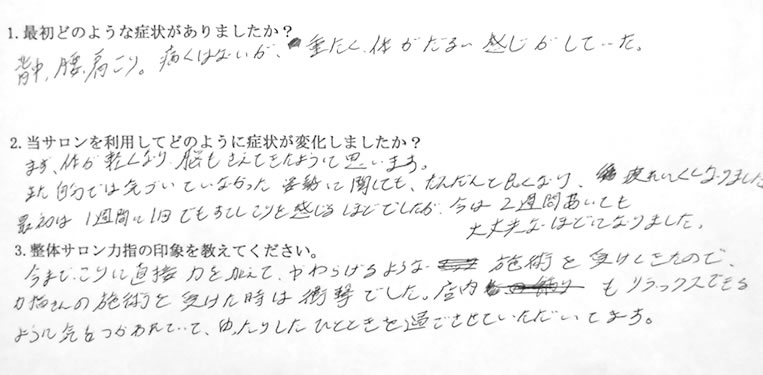 1.最初どのような症状がありましたか?
背中、腰、肩こり。痛くはないが、重たく、体がだるい感じがしていた。
2.当サロンを利用してどのように症状が変化しましたか?
まず、体が軽くなり、脳もさえてきたように思います。
また自分では気づいていなかった姿勢に関しても、だんだんと良くなり、疲れにくくなりました
最初は1週間に1回でもすごくこりを感じるほどでしたが、今は2週間あいても
大丈夫なほどになりました。
3.整体サロン力指の印象を教えてください。
今まで、こりに直接力を加えて、やわらげるような施術を受けてきたので、
力指さんの施術を受けた時は衝撃でした。店内もリラックスできる
ように気をつかわれていて、ゆったりしたひとときを過ごさせていただいてます。